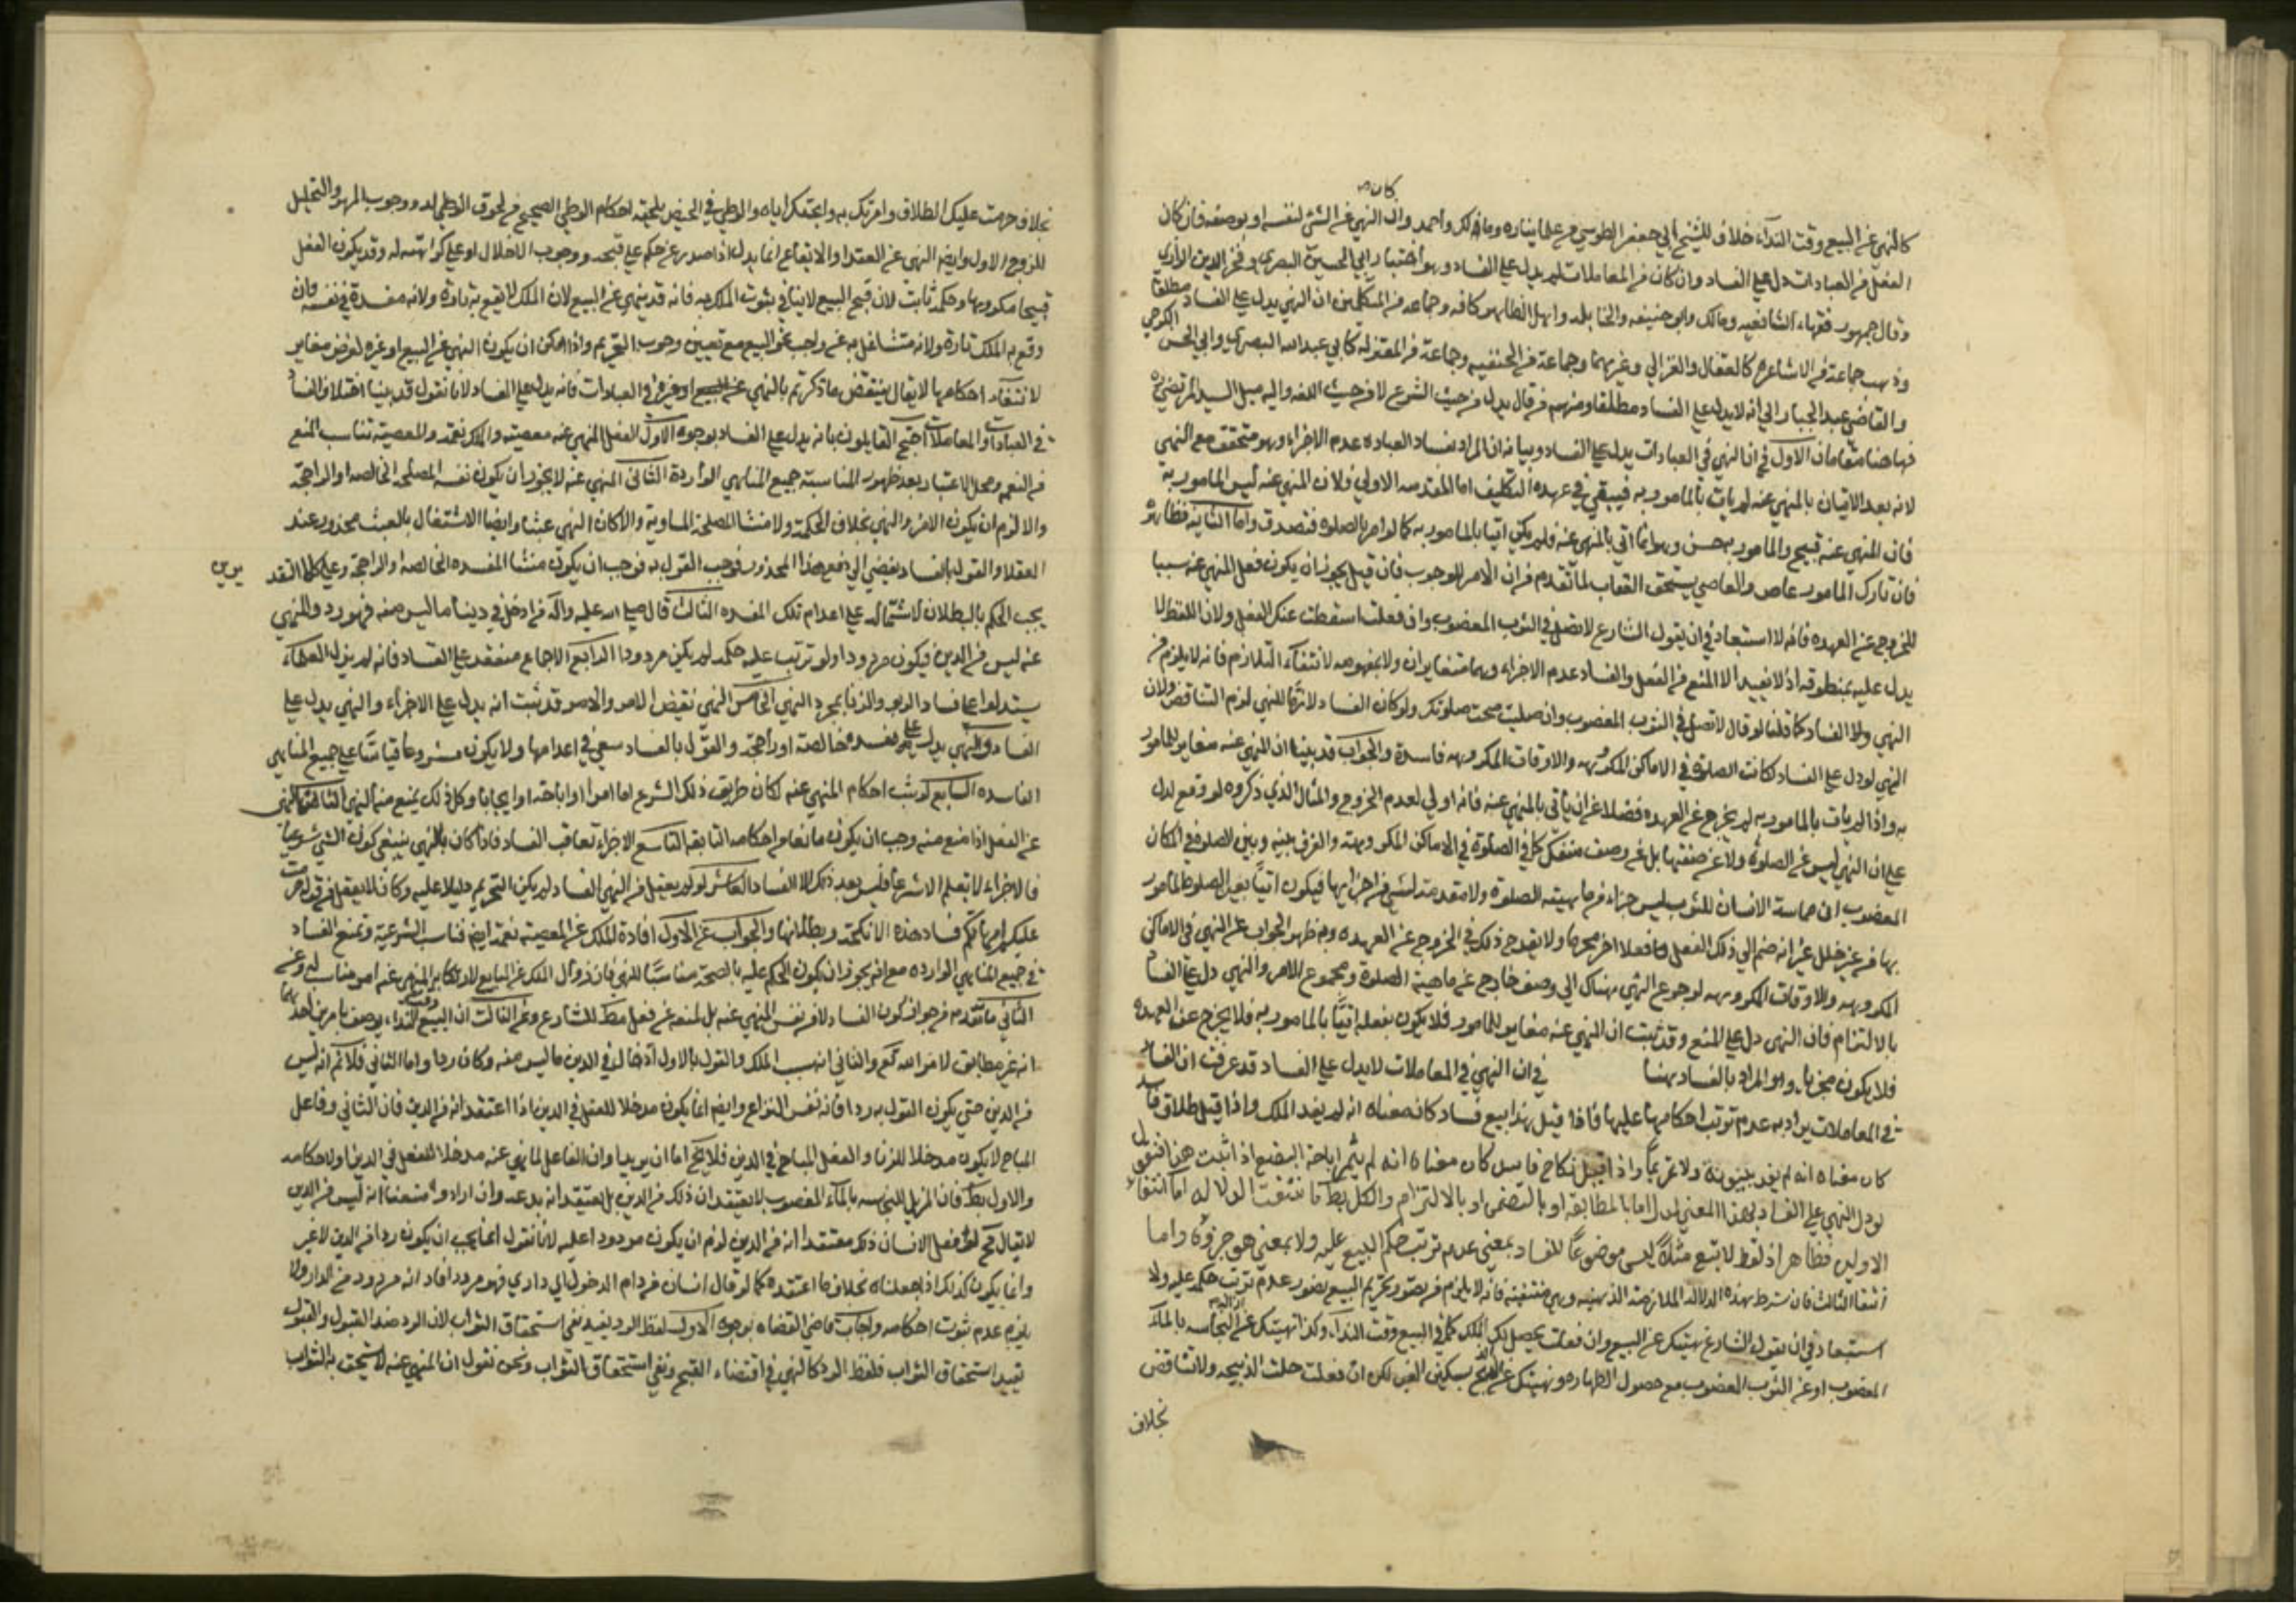 كان
كالنهي عن البيع وقت النداء خلاف للشيخ أبي جعفر الطوسي من علمائنا ره ومالك وأحمد وان النهي عن الشئ لنفسه او بوصفه فان كان
الفعل من العبادات دل على الفساد وان كان من المعاملات لم يدل على الفساد وهو أختيار أبي الحسين البصري وفخر الدين الرازي
وقال جمهور فقهاء الشافعيه ومالك وابو حنيفه والحنابله واهل الظاهر كافه وجماعه من المتكلمين ان النهي يدل على الفساد مطلقا
وذهب جماعة من الاشاعره كالقفال والغزالي وغيرهما وجماعة من الحنفيه وجماعة من المعتزله كابي عبد الله البصري وابي الحسن الكرخي
والقاضي عبد الجبار الى انه لا يدل على الفساد مطلقا ومنهم من قال يدل من حيث الشرع لا من حيث اللغه واليه ميل السيد المرتضى ره
فهاهنا مقامان الاول في ان النهي في العبادات يدل على الفساد وبيانه ان المراد بفساد العباده عدم الاجزاء وهو متحقق مع النهي
لانه بعد الاتيان بالمنهي عنه لم يات بالمامور به فيبقى في عهدة التكليف اما المقدمه الاولى فلان المنهي عنه ليس المامور به
فان المنهي عنه قبيح والمامور به حسن وهو انما اتى بالمنهي عنه فلم يكن اتيا بالمامور به كما لو امر بالصلوه فتصدق واما الثانيه فظاهره
فان تارك المامور عاص والعاصي يستحق العقاب لما تقدم من ان الامر للوجوب فان قيل يجوز ان يكون فعل المنهي عنه سببا
للخروج عن العهده فانه لا استبعاد في ان يقول الشارع لا تصل في الثوب المغصوب وان فعلت اسقطت عنك الفعل ولان اللفظ لا
يدل عليه بمنطوقه اذ لا يفيد الا المنع من الفعل والفساد عدم الاجزاء وهما متغايران ولا بمفهومه لانتفاء التلازم فانه لا يلزم من
النهي ولا الفساد كما قلنا لو قال لا تصل في الثوب المغصوب وان صليت صحت صلوتك ولو كان الفساد لازما للنهي لزم التناقض ولان
النهي لو دل على الفساد لكانت الصلوة في الاماكن المكروهه والاوقات المكروهه فاسدة والجواب قد بينا ان المنهي عنه مغاير للمامور
به واذا لم يات بالمامور به لم يخرج عن العهده فضلا عن ان ياتي بالمنهي عنه فانه اولى لعدم الخروج والمثال الذي ذكروه لو وقع لدل
على ان النهي ليس عن الصلوة ولا عن صفتها بل عن وصف منفك كما في الصلوة في الاماكن المكروهه والفرق بينه وبين الصلوة في المكان
المغصوب ان مماسة الانسان للثوب ليس جزاء من ماهية الصلوة ولا مقدمة لشي من اجزايها فيكون اتيا بعين الصلوة المامور
بها من غير خلل غير انه ضم الى ذلك الفعل فعلا اخر محرما ولا يقدح ذلك في الخروج عن العهده وبه ظهر الجواب عن النهي في الاماكن
المكروهه والاوقات المكروهه لرجوع النهي هناك الى وصف خارج عن ماهية الصلوة ومجموع الامر والنهي دل على الفساد
بالالتزام فان النهي دل على المنع وقد ثبت ان المنهي عنه مغاير للمامور فلا يكون بفعله اتيا بالمامور به فلا يخرج عن العهدة
فلا يكون مجزيا وهو المراد بالفساد هنا في ان النهي في المعاملات لا يدل على الفساد قد عرفت ان الفساد
في المعاملات يراد به عدم ترتب احكامها عليها فاذا قيل هذا بيع فساد كان معناه انه لم يفد الملك واذا قيل طلاق فاسد
كان معناه انه لم يفد بينونة ولا تحريما واذا قيل نكاح فاسد كان معناه انه لم يثمر اباحة البضع اذا ثبت هذا فنقول
لو دل النهي على الفساد بهذا المعنى لدل اما بالمطابقه او بالتضمن او بالالتزام والكل بط فانتفت الدلاله اما انتفاء
الاولين فظاهر اذ لفظ لا تبع مثلا ليس موضوعا للفساد بمعنى عدم ترتب حكم البيع عليه ولا بمعنى هو جزؤه واما
انتفاء الثالث فان شرط هذه الدلاله الملازمة الذهنيه وهي منتفيه فانه لا يلزم من تصور تحريم البيع تصور عدم ترتب حكمه عليه ولا
استبعاد في ان يقول الشارع نهيتك عن البيع وان فعلت يحصل لك الملك كما في البيع وقت النداء وكذا نهيتك عن ازالة النجاسه بالماء
المغصوب او عن الثوب المغصوب مع حصول الطهاره ونهيتك عن الذبح بسكين الغير لكن ان فعلت حلت الذبيحه ولا تناقض
بخلاف
بخلاف حرمت عليك الطلاق وامرتك به وابحتك اياه والوطي في الحيض يلحقه احكام الوطي الصحيح من لحوق الولد ووجوب المهر والتحليل
للزوج الاول وايضا النهي عن العقد او الايقاع انما يدل اذا صدر عن حكيم على قبحه ووجوب الاخلال او على كراهته له وقد يكون الفعل
قبيحا مكروها وحكمه ثابت لان قبح البيع لا ينافي ثبوت الملك به فانه قد ينهي عن البيع لان الملك لا يقع به تارة ولانه مفسدة في نفسه وان
وقع به الملك تارة ولانه متشاغل به عن واجب نحو البيع مع تعيين وجوب التحريم واذا امكن ان يكون النهي عن البيع او غيره لغرض مغاير
لانتفاء احكامها لا يقال ينتقض ما ذكرتم بالنهي عن العبادات فانه يدل على الفساد لانا نقول قد بينا اختلاف الفساد
في العبادات والمعاملات احتج القايلون بانه يدل على الفساد بوجوه الاول الفعل المنهي عنه معصيته والملك نعمة والمعصية تناسب المنع
من النعم ومحل الاعتبار بعد ظهور المناسبة جميع المناهي الواردة الثاني المنهي عنه لا يجوز ان يكون نفسه المصلحه الخالصه او الراجحة
والا لزم ان يكون الامر والنهي بخلاف الحكمة ولا منشا المصلحة المساوية والا كان النهي عبثا وايضا الاشتغال بالعبث محذور عند
العقلا والقول بالفساد يفضي الى دفع هذا المحذور فوجب القول به فوجب ان يكون منشا المفسده الخالصه والراجحة وعلى كلا التقد
يرين
يجب الحكم بالبطلان لاشتماله على اعدام تلك المفسده الثالث قال صلى الله عليه وآله من ادخل في ديننا ما ليس منه فهو رد والمنهي
عنه ليس من الدين فيكون مردودا ولو ترتب عليه حكمه لم يكن مردودا الرابع الاجماع منعقد على الفساد فانه لم يزل العلماء
يستدلوا على فساد الربو والزنا بمجرد النهي الخامس النهي نقيض الامر والامر قد ثبت انه يدل على الاجزاء والنهي يدل على
الفساد والنهي يدل على مفسده خالصة او راجحة والقول بالفساد سعي في اعدامها ولا يكون مشروعا قياسا على جميع المناهي
الفاسده السابع لو ثبت احكام المنهي عنه لكان طريق ذلك الشرع اما امرا او اباحة او ايجابا وكل ذلك يمنع منه النهي الثامن النهي
عن الفعل اذا منع منه وجب ان يكون مانعا من احكامه التابعه التاسع الاجزاء تعاقب الفساد فاذا كان بالنهي ينبغي كون الشي شرعيا
فالاجزاء لا يعلم الا شرعا فليس بعد ذلك الا الفساد العاشر لو لم يعقل من النهي الفساد لم يكن التحريم دليلا عليه وكان لا يعقل من قوله حرمت
عليكم امهاتكم فساد هذه الانكحة وبطلانها والجواب عن الاول افادة الملك عن المعصية نعمة ايض فناسب الشرعية ونمنع الفساد
في جميع المناهي الوارده مع انه يجوز ان يكون الحكم عليه بالصحة مناسبا للنهي فان زوال الملك عن البايع لارتكابه المنهي عنه امر مناسب له وعن
الثاني ما تقدم من جواز كون الفساد لا من نفس المنهي عنه بل لمنعه عن فعل مطلوب للشارع وعن الثالث ان البيع وقت النداء يوصف بامرين احدهما
انه غير مطابق لامر الله تع والثاني انه سبب الملك والقول بالاول ادخال في الدين ما ليس منه وكان ردا واما الثاني فلا نم انه ليس
من الدين حتى يكون القول به ردا فانه نفس النزاع وايضا انما يكون مدخلا للفعل في الدين اذا اعتقد انه من الدين فان الثاني وفاعل
المباح لا يكون مدخلا للزنا والفعل المباح في الدين فلا يخ اما ان يريد به ان الفاعل لما نهي عنه مدخلا للفعل في الدين او لاحكامه
والاول بط فان المزيل للنجاسه بالماء المغصوب لا يعتقد ان ذلك من الدين بل يعتقد انه بدعه وان اراد منعنا انه ليس من الدين
لا يقال نحو لو فعل الانسان ذلك معتقدا انه من الدين لزم ان يكون مردودا عليه لانا نقول انما يجب ان يكون ردا من الدين لا غير
وانما يكون كذلك اذا جعلناه بخلاف ما اعتقده كما لو قال انسان من دام الدخول الى داري فهو مردود افاد انه مردود من الدار ولا
يلزم عدم ثبوت احكامه واجاب قاضي القضاه بوجوه الاول لفظ الرد يفيد نفي استحقاق الثواب لان الرد ضد القبول والقبول
يفيد استحقاق الثواب فلفظ الرد كالنهي في اقتضاء القبح ونفي استحقاق الثواب ونحن نقول ان المنهي عنه لا يستحق به الثواب